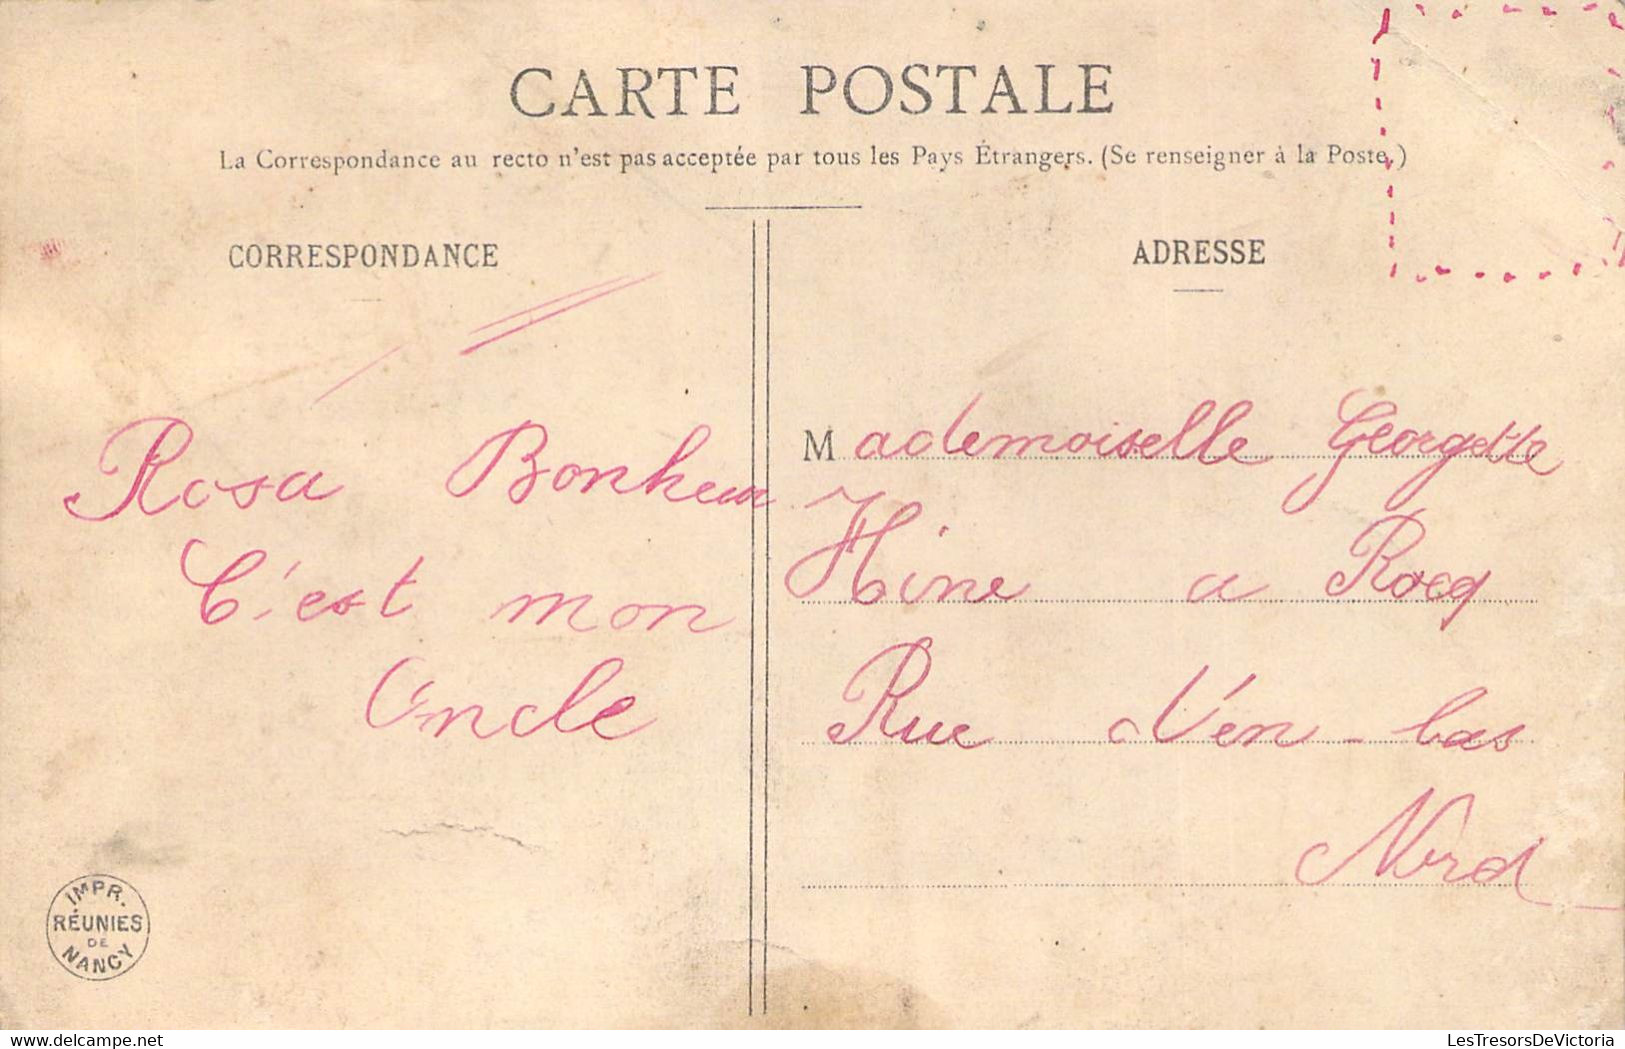 CARTE POSTALE
La Correspondance au recto n'est pas acceptée par tous les Pays Étrangers. (Se renseigner à la Poste.)
CORRESPONDANCE
Rosa Bonheur
C'est mon
Oncle
IMPR.
RÉUNIES
DE
NANCY
ADRESSE
Mademoiselle Georgette
Hine a Rocq
Rue d'en-bas
Nord
LesTresorsDeVictoria